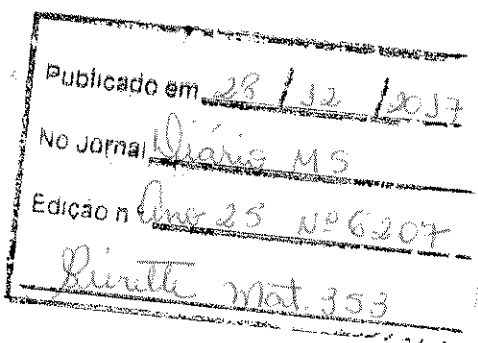 Publicado em 28 / 12 / 2017
No Jornal Diário MS
Edição n Ano 25 Nº 6207
Mat. 353